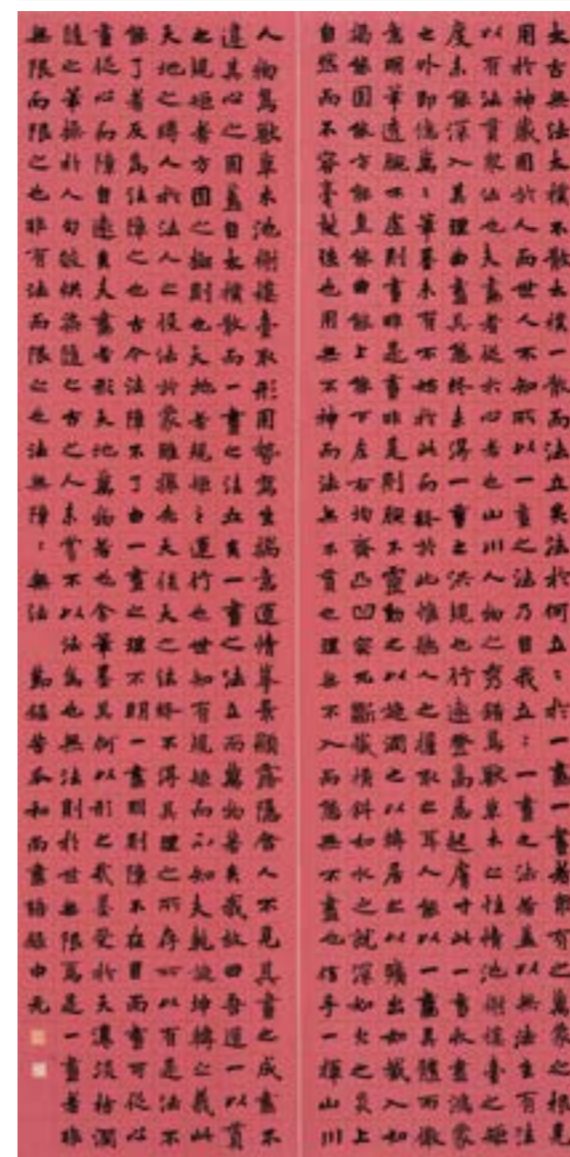 太古無法太樸不散太樸一散而法立矣法於何立：於一畫一畫者眾有之萬象之根見
用於神藏用於人而世人不知所以一畫之法乃自我立：一畫之法者蓋以無法生有法
以有法貫眾法也夫畫者從於心者也山川人物之秀錯鳥獸草木之性情池榭樓臺之矩
度未能深入其理曲盡其態終未得一畫之洪規也行遠登高悉起膚寸此一畫收盡鴻蒙
之外即億萬：筆墨未有不始於此而終於此惟聽人之握取之耳人能以一畫具體而微
意明筆透腕不虛則畫非是畫非是則腕不靈動之以旋潤之以轉居之以曠出如截入如
揭能圓能方能直能曲能上能下左右均齊凸凹突兀斷截橫斜如水之就深如火之炎上
自然而不容毫髮強也用無不神而法無不貫也理無不入而態無不盡也信手一揮山川
人物鳥獸草木池榭樓臺取形用勢寫生揣意運情摹景顯露隱含人不見其畫之成畫不
違其心之用蓋自太樸散而一畫之法立矣一畫之法立而萬物著矣我故曰吾道一以貫
之規矩者方圓之極則也天地者規矩之運行也世知有規矩而不知夫乾旋坤轉之義此
天地之縛人於法人之役法於蒙雖攘先天後天之法終不得其理之所存所以有是法不
能了者反為法障之也古今法障不了由一畫之理不明一畫明則障不在目而畫可從心
畫從心而障自遠矣夫畫者形天地萬物者也舍筆墨其何以形之哉墨受於天濃淡枯潤
隨之筆操於人句皴烘染隨之古之人未嘗不以法為也無法則於世無限焉是一畫者非
無限而限之也非有法而限之也法無障：無法 節錄苦瓜和尚畫語錄中元